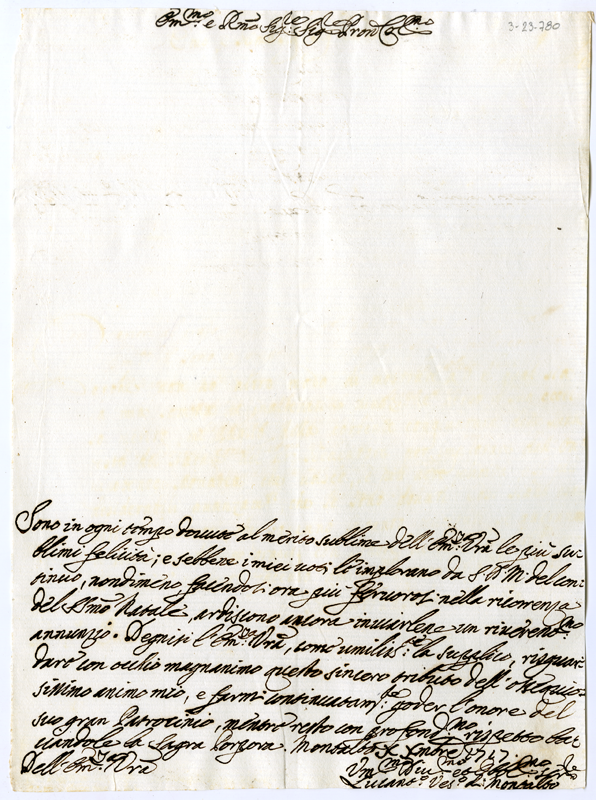 Em.mo e Rmo Sig.re Sig.re Pron Col.mo
3-23-780
Sono in ogni tempo dovute al merito sublime dell'Em.za Vra le più su-
blimi felicità; e sebbene i miei voti le implorano da S.D.M. del con-
tinuo, nondimeno facendosi ora più fervorosi nella ricorrenza
del SSmo Natale, ardiscono ancora inviarlene un riveren.mo
annunzio. Degnisi l'Em.za Vra, come umilis.te la supplico, risguar-
dare con occhio magnanimo questo sincero tributo dell'ossequio-
sissimo animo mio, e farmi continuatam.te goder l'onore del
suo gran Patrocinio, mentre resto con profond.mo rispetto bac-
ciandole la Sagra Porpora. Montalto Xmbre 1717
Dell'Em.za Vra
Um.mo Div.mo et Obl.mo
Lucant.o Ves.o di Montalto